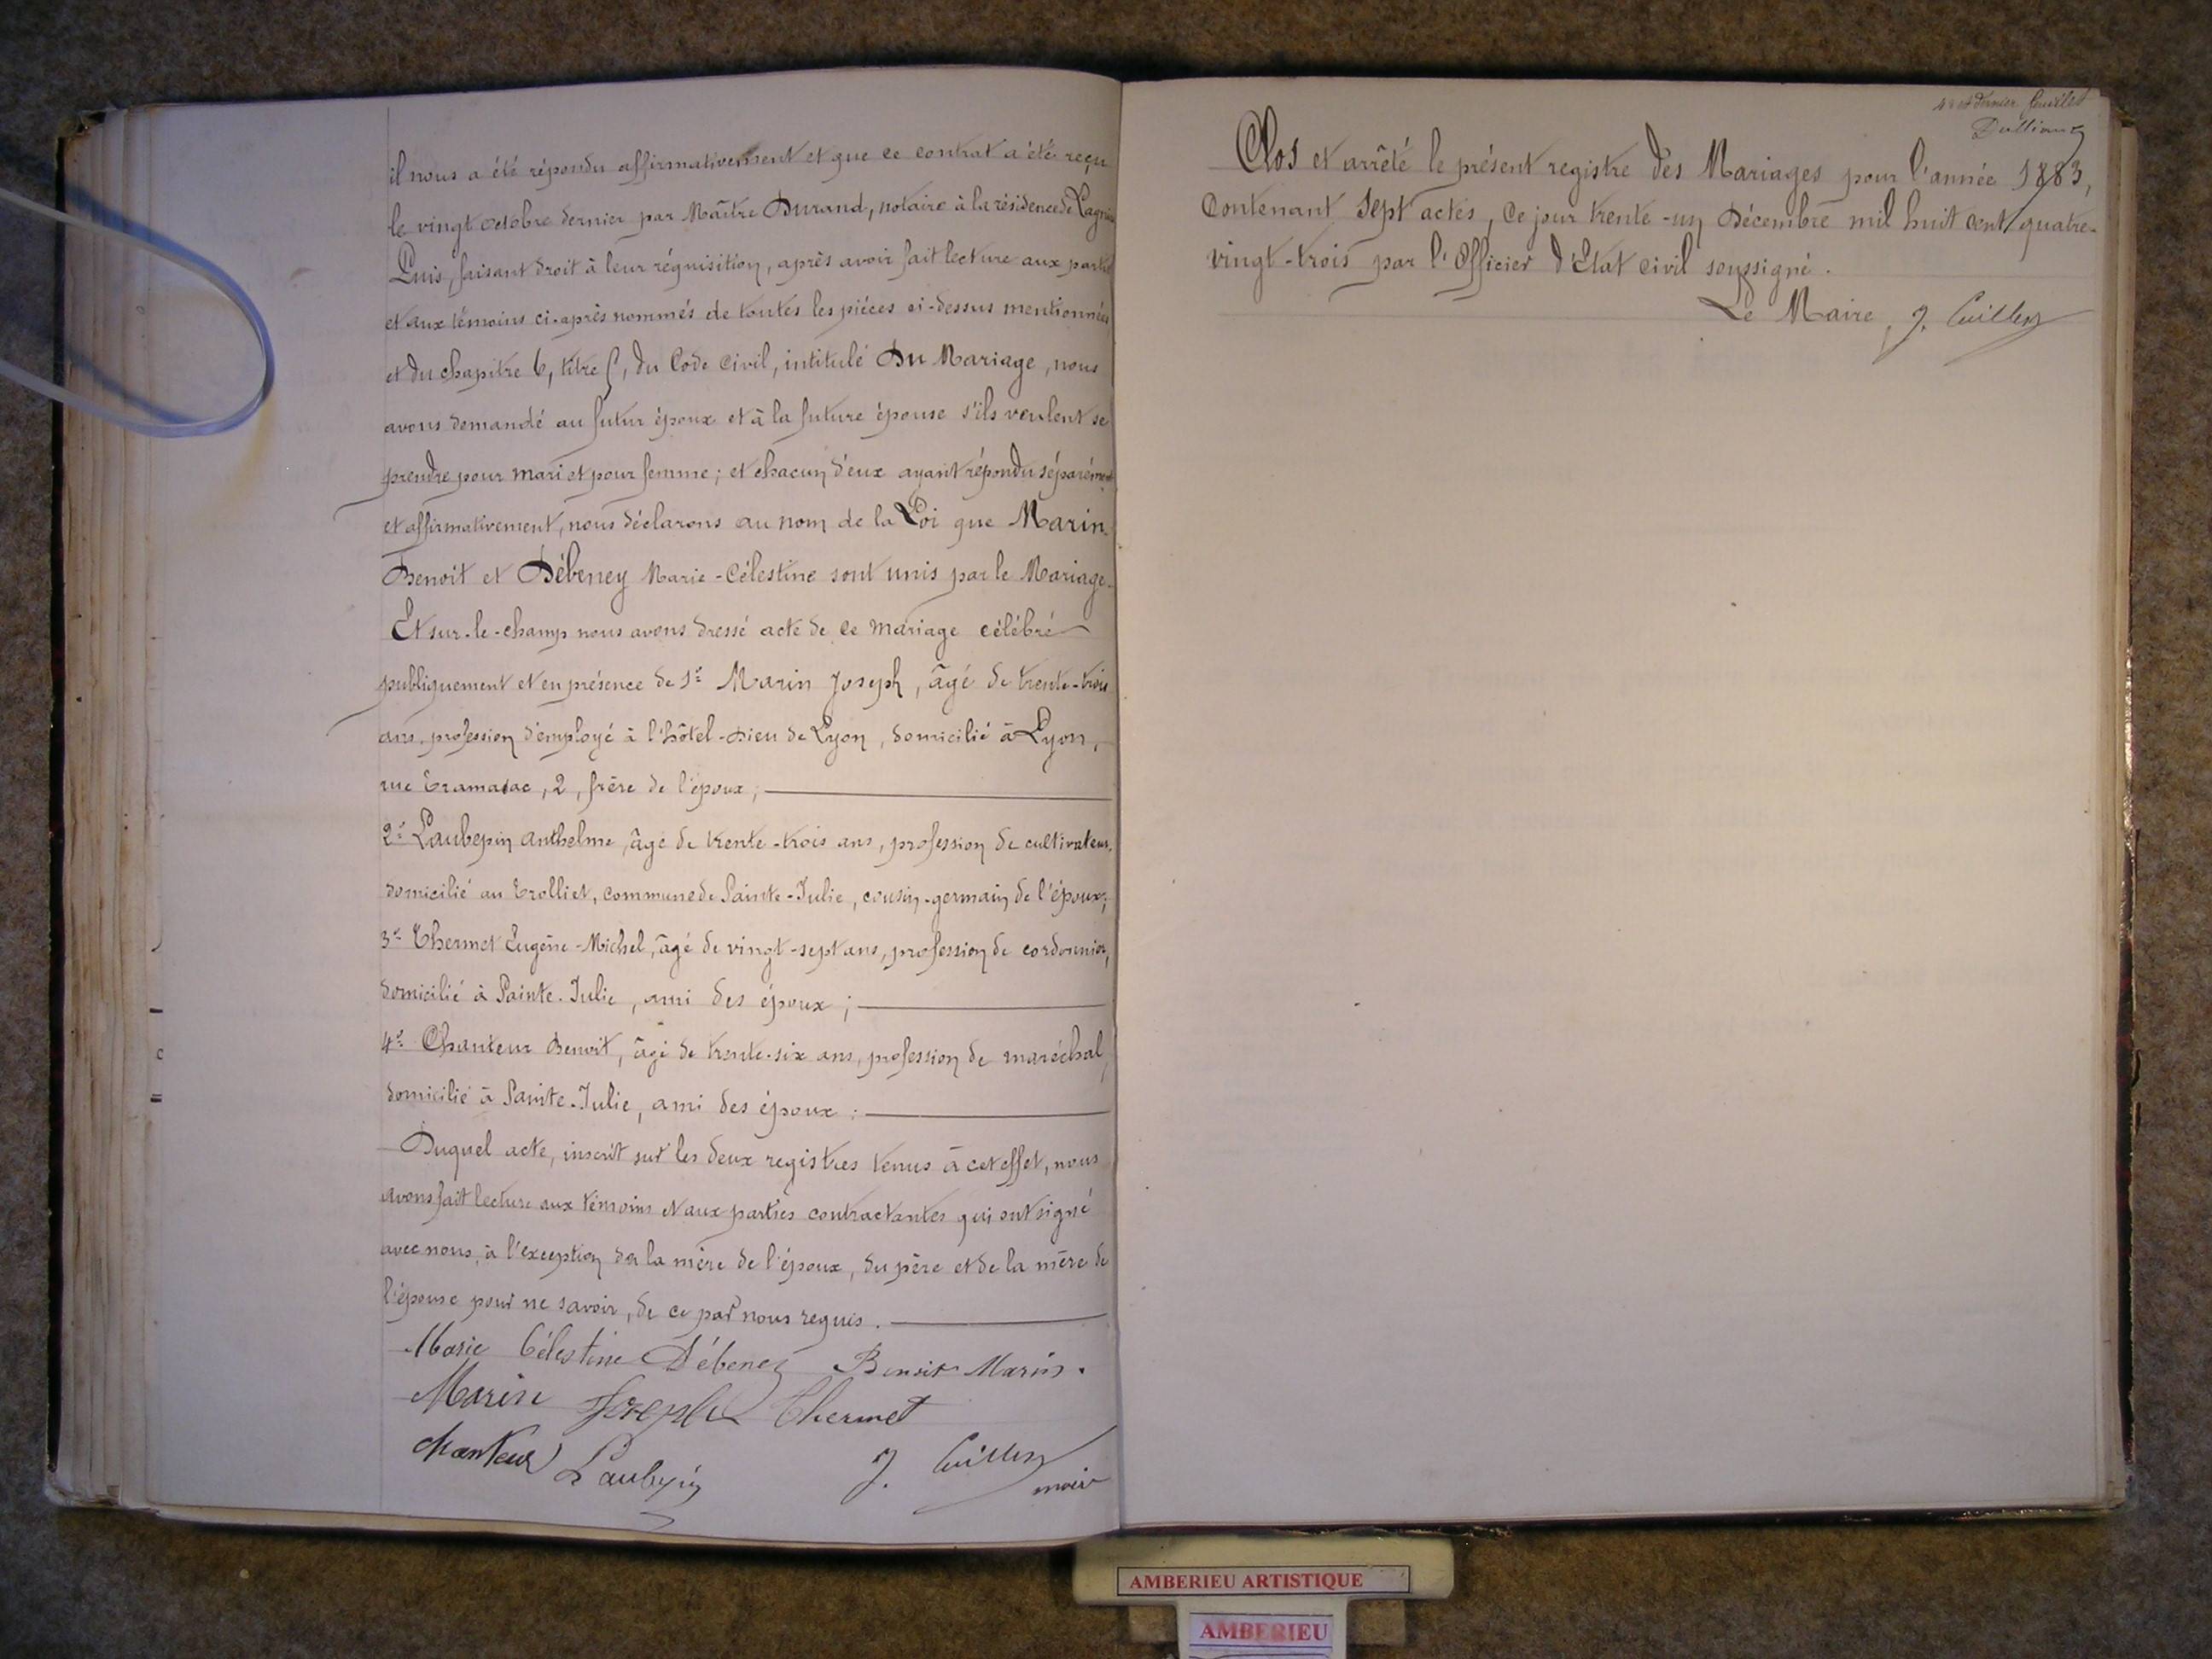 il nous a été répondu affirmativement et que ce contrat a été reçu
le vingt octobre dernier par Maître Durand, notaire à la résidence de
Puis, faisant droit à leur réquisition, après avoir fait lecture aux parties
et aux témoins ci-après nommés de toutes les pièces ci-dessus mentionnées
et du chapitre 6, titre 5, du Code Civil, intitulé Du Mariage, nous
avons demandé au futur époux et à la future épouse s'ils veulent se
prendre pour mari et pour femme; et chacun d'eux ayant répondu séparément
et affirmativement, nous déclarons au nom de la Loi que Marin
Benoit et Débeney Marie-Célestine sont unis par le Mariage.
Et sur-le-champ nous avons dressé acte de ce mariage célébré
publiquement et en présence de 1º Marin Joseph, âgé de trente-trois
ans, profession d'employé à l'hôtel-Dieu de Lyon, domicilié à Lyon,
rue Tramassac, 2, frère de l'époux;
2º Laubepin Anthelme, âgé de trente-trois ans, profession de cultivateur,
domicilié au Trolliet, commune de Sainte-Julie, cousin-germain de l'époux;
3º Thermet Eugène-Michel, âgé de vingt-sept ans, profession de cordonnier,
domicilié à Sainte-Julie, ami des époux;
4º Chanteur Benoit, âgé de trente-six ans, profession de maréchal,
domicilié à Sainte-Julie, ami des époux.
Duquel acte, inscrit sur les deux registres tenus à cet effet, nous
avons fait lecture aux témoins et aux parties contractantes qui ont signé
avec nous, à l'exception de la mère de l'époux, du père et de la mère de
l'épouse pour ne savoir, de ce par nous requis.
Marie Célestine Débeney Benoit Marin.
Marin Joseph Thermet
Chanteur Laubepin J. maire
4e et dernier feuillet
Clos et arrêté le présent registre des Mariages pour l'année 1883,
Contenant Sept actes, Ce jour trente-un Décembre mil huit cent quatre-
vingt-trois par l'Officier d'Etat civil soussigné.
Le Maire, J.
AMBERIEU ARTISTIQUE
AMBERIEU